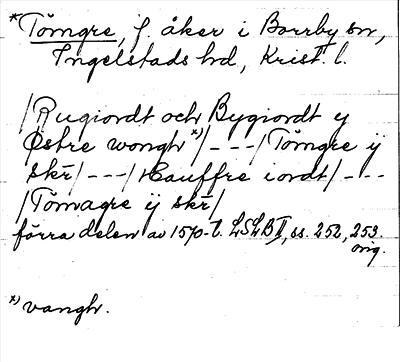 *Tömgre, f. åker i Borrby sn,
Ingelstads hd, Krist. l.
/Rugiordt och Bygiordt y
Østre wongh*)/---/Tömgre ij
skr̄/---/Hauffre iordt/---
/Tömagre ij skr̄/
förra delen av 1570-t. LSLB II, ss. 252, 253.
orig.
*) vangh.